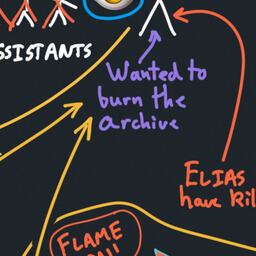 SSISTANTS
Wanted to
burn the
archive
ELIAS
have kil
FLAME